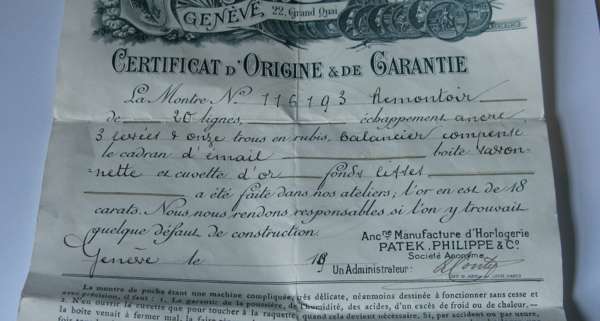 GENÈVE 22, Grand Quai
CERTIFICAT D'ORIGINE & DE GARANTIE
La Montre No 116193 Remontoir
de 20 lignes, échappement ancre
3 levées & onze trous en rubis, balancier compensé
le cadran d'émail boîte savon-
nette et cuvette d'or fonds lisses
a été faite dans nos ateliers; l'or en est de 18
carats. Nous nous rendons responsables si l'on y trouvait
quelque défaut de construction.
Ancne Manufacture d'Horlogerie
PATEK, PHILIPPE & Co
Société Anonyme
Genève le 19
Un Administrateur:
La montre de poche étant une machine compliquée, très délicate, néanmoins destinée à fonctionner sans cesse et
avec précision, il faut: 1. La garantir de la poussière, de l'humidité, des acides, d'un excès de froid ou de chaleur.—
2. N'en ouvrir la cuvette que pour toucher à la raquette, quand cela devient nécessaire. Si, par accident ou par usure,
la boîte venait à fermer mal, la faire